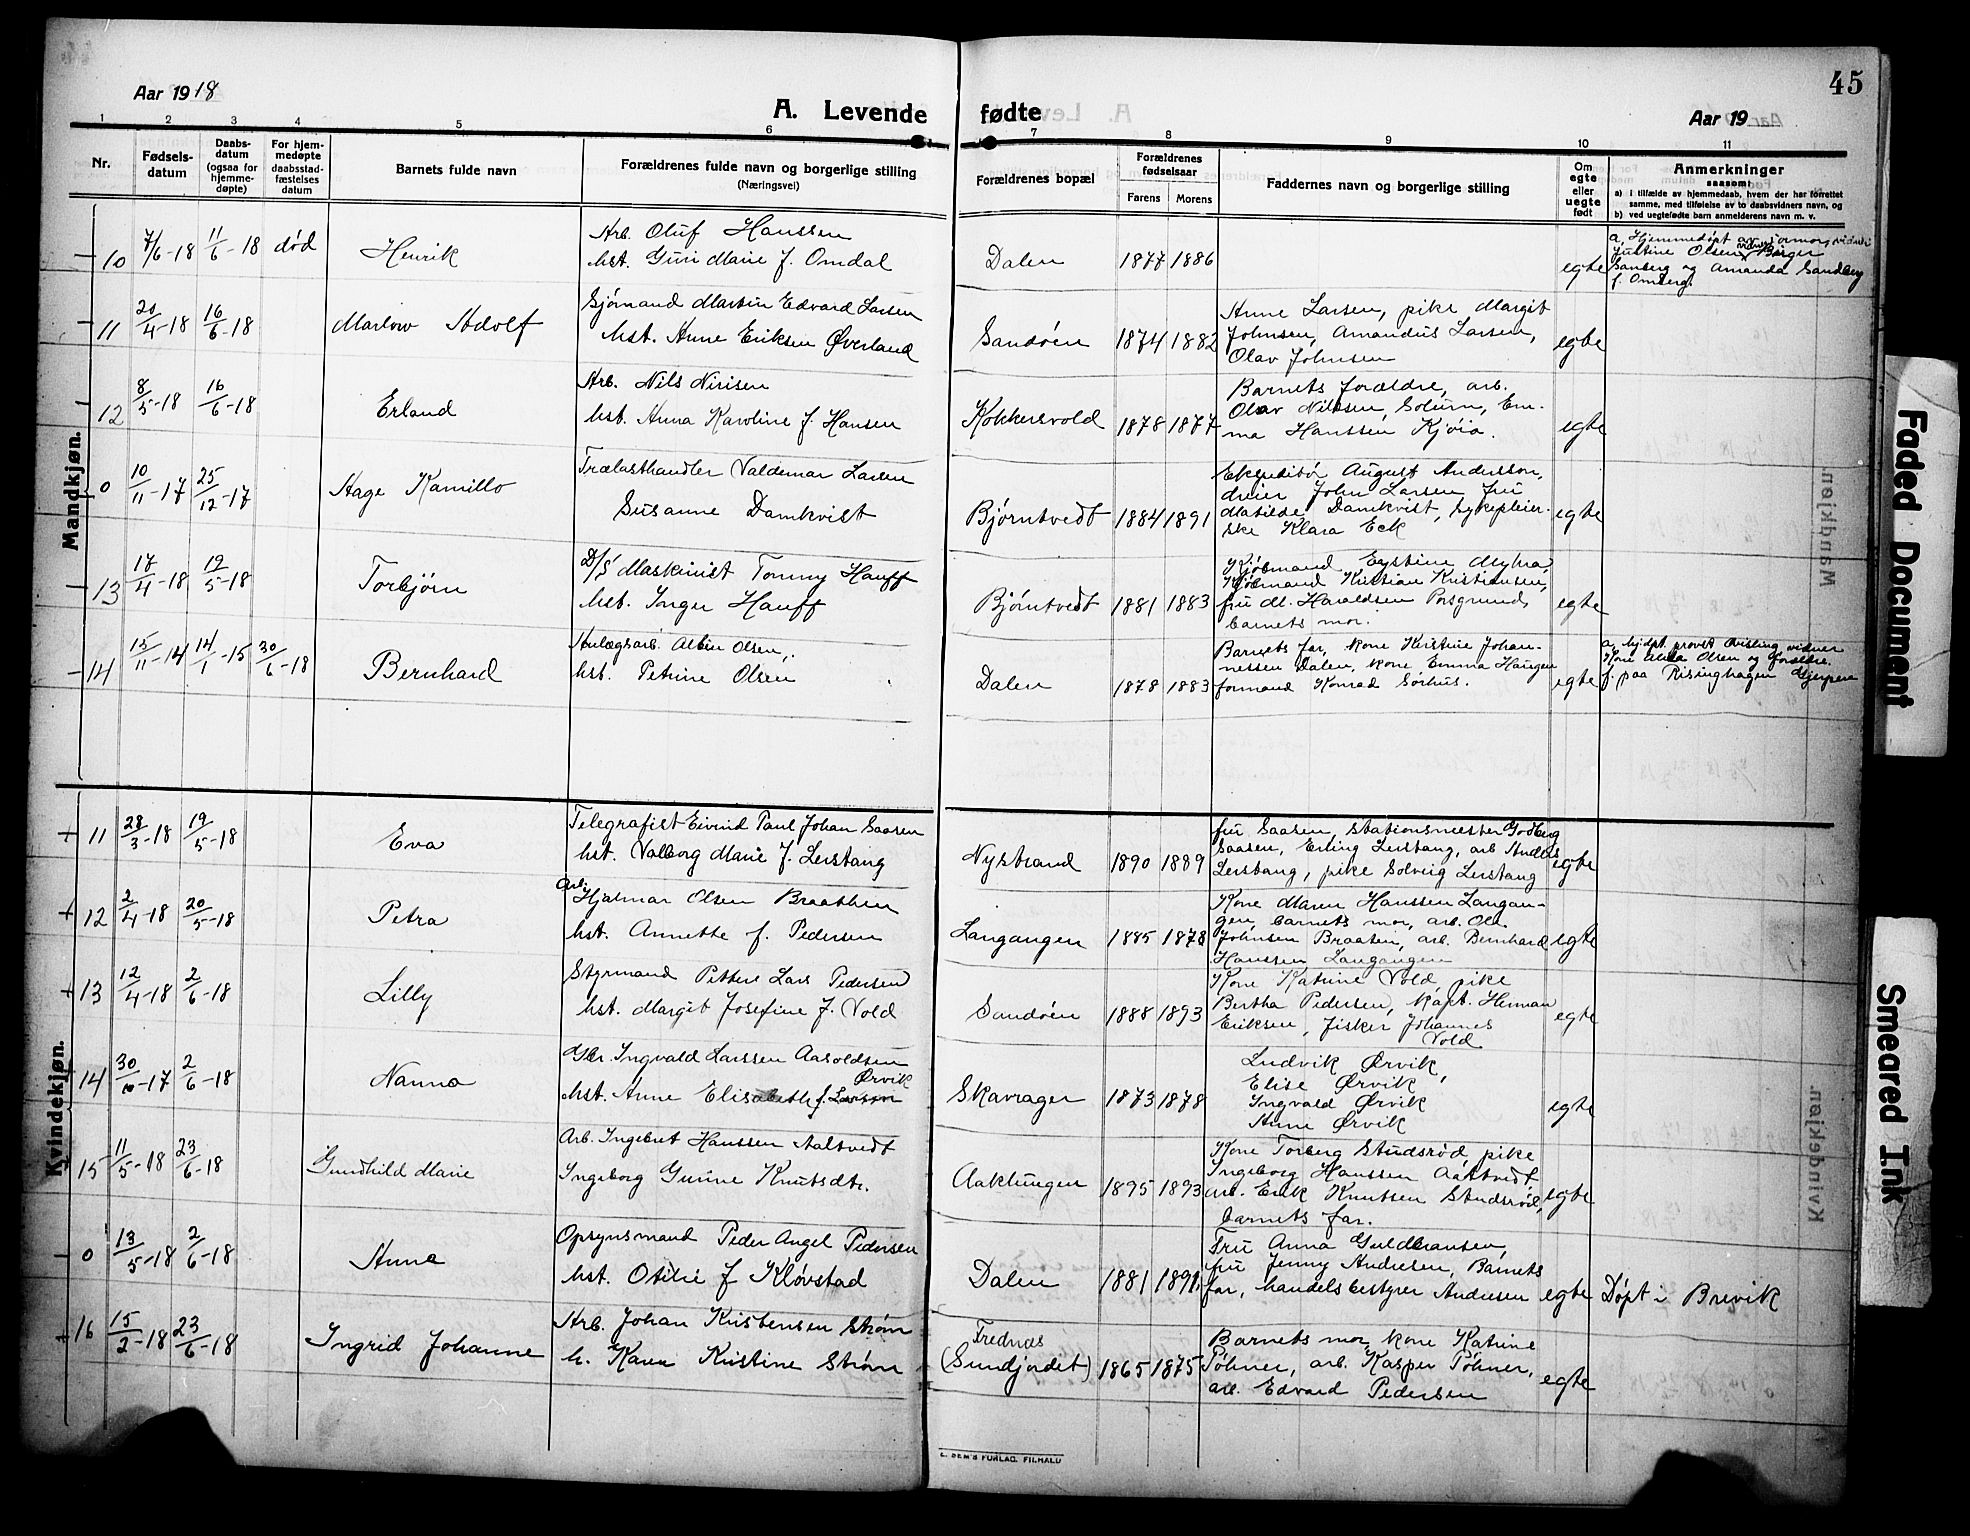 45
Aar 1918
A. Levende fødte
Aar 19
1 2 3 4 5 6 7 8 9 10 11
Nr.
Fødsels-
datum
Daabs-
datum
(ogsaa for
hjemme-
døpte)
For hjem-
medøpte
daabsstad-
fæstelses
datum
Barnets fulde navn
Forældrenes fulde navn og borgerlige stilling
(Næringsvei)
Forældrenes bopæl
Forældrenes
fødselsaar
Farens Morens
Faddernes navn og borgerlige stilling
Om
egte
eller
uegte
født
Anmerkninger
saasom:
a) i tilfælde av hjemmedaab, hvem der har forrettet
samme, med tilføielse av to daabsvidners navn, og
b) ved uegtefødte barn anmelderens navn m. v.
Mandkjøn.
10 7/6-18 11/6-18 død Henrik
Arb. Oluf Hanssen
hst. Guri Marie f. Omdal
Dalen 1877 1886 egte
a, Hjemmedøpt av jormor, vidner
Justine Olsen, Birger
Sanberg og Amanda Sandberg
f. Omberg.
11 20/4-18 16/6-18 Marlow Adolf
Sjømand Martin Edvard Larsen
hst. Anne Eriksen Øverland
Sandøen 1874 1882
Anne Larsen, pike Margit
Johnsen, Amandus Larsen,
Olav Johnsen
egte
12 8/5-18 16/6-18 Erland
Arb. Nils Nirisen
hst. Anna Karoline f. Hansen
Kokkersvold 1878 1877
Barnets forældre, arb.
Olav Nilssen, Solum, Em-
ma Hanssen Kjøia.
egte
0 10/11-17 25/12-17 Aage Kamillo
Trælasthandler Valdemar Larsen
Susanne Damkvist
Bjørntvedt 1884 1891
Ekspeditør August Andersson,
dreier John Larsen, fru
Matilde Damkvist, sykepleier-
ske Klara Eck
egte
13 17/4-18 19/5-18 Torbjørn
D/S Maskinist Tommy Hauff
hst. Inger Hauff
Bjørntvedt 1881 1883
Kjøbmand Eystine Myhra,
Kjøbmand Kristian Kristiansen,
fru M. Haraldsen Porsgrund,
barnets mor.
egte
14 15/11-14 14/1-15 30/6-18 Bernhard
Anlægsarb. Albin Olsen,
hst. Petrine Olsen
Dalen 1878 1883
Barnets far, kone Kirstine Johan-
nessen Dalen, kone Emma Haugen
formand Konrad Sørhus.
egte
a, hjdpt. provst Qvisling vidner
Kone Olsen og forældre.
f. paa Risinghagen Gjerpen
Kvindekjøn.
11 28/3-18 19/5-18 Eva
Telegrafist Eivind Paul Johan Saasen
hst. Valborg Marie f. Leistang
Nystrand 1890 1889
fru Saasen, stationsmester Godberg
Saasen, Erling Leistang, arb Anders
Leistang, pike Solveig Leistang
egte
12 2/4-18 20/5-18 Petra
Arb. Hjalmar Olsen Braathen
hst. Annette f. Pedersen
Langangen 1885 1878
Kone Maren Hanssen Langan-
gen, barnets mor, arb. Ole
Johnsen Braaten, arb. Bernhard
Hanssen Langangen
egte
13 12/4-18 2/6-18 Lilly
Styrmand Petter Lars Pedersen
hst. Margit Josefine f. Vold
Sandøen 1888 1893
Kone Katrine Vold, pike
Bertha Pedersen, kapt. Herman
Eriksen, fisker Johannes
Vold
egte
14 30/10-17 2/6-18 Nanna
Gbr. Ingvald Larssen Aasoldsen
Ørvik
hst. Anne Elisabeth f. Larsen
Skavrager 1873 1878
Ludvik Ørvik,
Elise Ørvik
Ingvald Ørvik
Anne Ørvik
egte
15 11/5-18 23/6-18 Gundhild Marie
Arb. Ingebret Hanssen Aaltvedt
Ingeborg Gurine Knutsdtr.
Aaklungen 1895 1893
Kone Torberg Studsrød, pike
Ingeborg Hanssen Aaltvedt,
arb. Erik Knutsen Studsrød,
barnets far.
egte
0 13/5-18 2/6-18 Anna
Opsynsmand Peder Angel Pedersen
hst. Otilie f Kløvstad
Dalen 1881 1891
Fru Anna Guldbransen,
fru Jenny Andresen, Barnets
far, handelsbestyrer Andresen
egte
Døpt i Brevik
16 15/2-18 23/6-18 Ingrid Johanne
Arb. Johan Kristensen Strøm
h. Karen Kristine Strøm
Frednes
(Sundjordet) 1865 1875
Barnets mor, kone Katrine
Pøhner, arb. Kasper Pøhner,
arb. Edvard Pedersen
egte
Faded Document
Smeared Ink